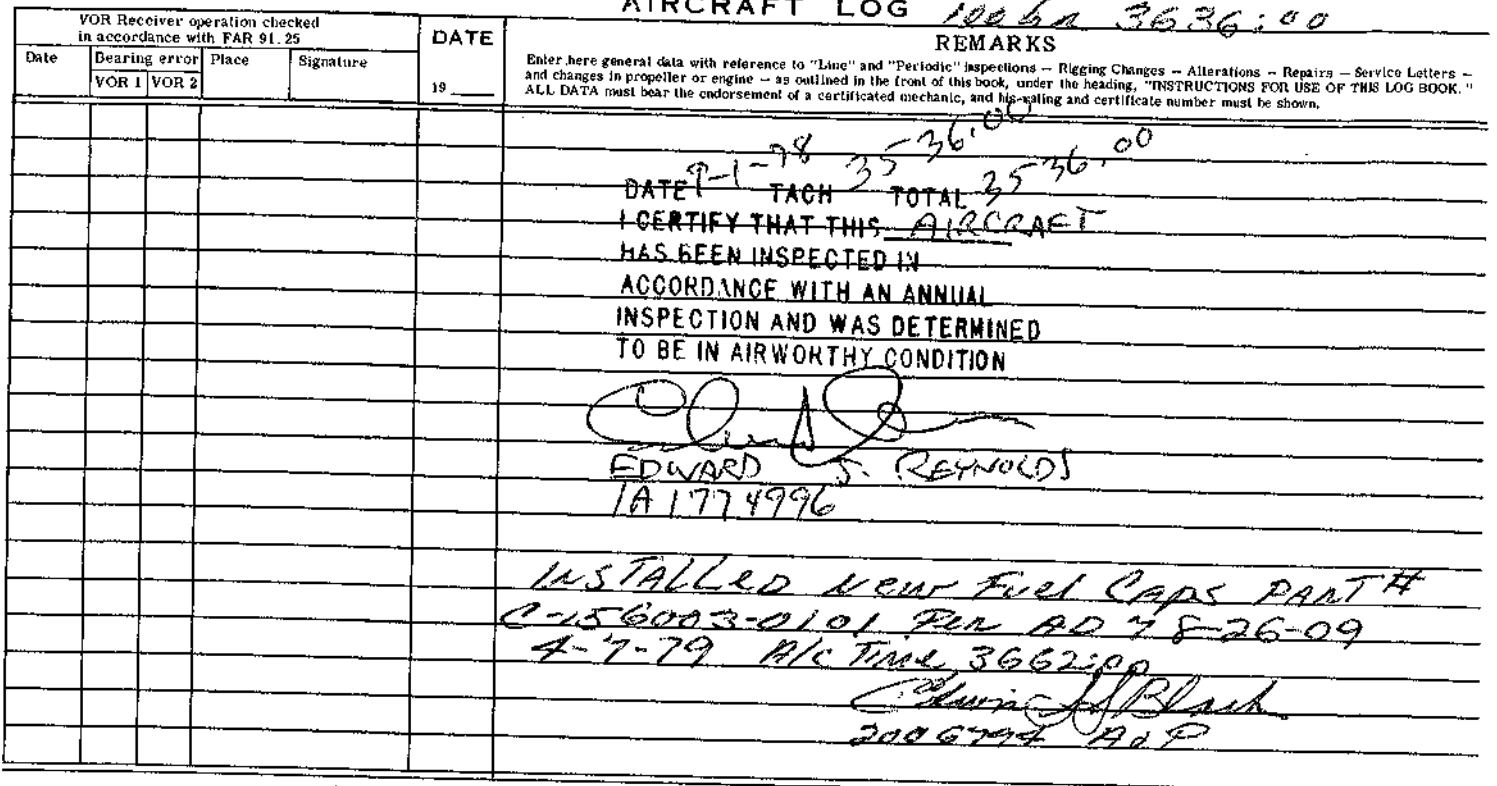 AIRCRAFT LOG 100 hr 3636:00
VOR Receiver operation checked
in accordance with FAR 91.25
Date
Bearing error
VOR 1 VOR 2
Place
Signature
DATE
19
REMARKS
Enter here general data with reference to "Line" and "Periodic" inspections -- Rigging Changes -- Alterations -- Repairs -- Service Letters --
and changes in propeller or engine -- as outlined in the front of this book, under the heading, "INSTRUCTIONS FOR USE OF THIS LOG BOOK."
ALL DATA must bear the endorsement of a certificated mechanic, and his rating and certificate number must be shown.
DATE 9-1-78 TACH 3536.00 TOTAL 3536.00
I CERTIFY THAT THIS AIRCRAFT
HAS BEEN INSPECTED IN
ACCORDANCE WITH AN ANNUAL
INSPECTION AND WAS DETERMINED
TO BE IN AIRWORTHY CONDITION
EDWARD J. REYNOLDS
IA 1774996
INSTALLED New Fuel CAPS PART #
C-156003-0101 Per AD 78-26-09
4-7-79 A/C Time 3662:00
A&P